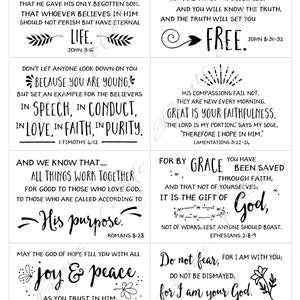 THAT HE GAVE HIS ONLY BEGOTTEN SON,
THAT WHOEVER BELIEVES IN HIM
SHOULD NOT PERISH BUT HAVE ETERNAL
LIFE.
JOHN 3:16
AND YOU WILL KNOW THE TRUTH,
AND THE TRUTH WILL SET YOU
FREE.
JOHN 8:31-32
DON'T LET ANYONE LOOK DOWN ON YOU
BECAUSE YOU ARE YOUNG,
BUT SET AN EXAMPLE FOR THE BELIEVERS
IN SPEECH, IN CONDUCT,
IN LOVE, IN FAITH, IN PURITY.
1 TIMOTHY 4:12
HIS COMPASSIONS FAIL NOT.
THEY ARE NEW EVERY MORNING;
GREAT IS YOUR FAITHFULNESS.
THE LORD IS MY PORTION," SAYS MY SOUL,
"THEREFORE I HOPE IN HIM."
LAMENTATIONS 3:22-24
AND WE KNOW THAT....
ALL THINGS WORK TOGETHER
FOR GOOD TO THOSE WHO LOVE GOD,
TO THOSE WHO ARE CALLED ACCORDING TO
His purpose.
ROMANS 8:28
FOR BY GRACE YOU HAVE BEEN SAVED
THROUGH FAITH,
AND THAT NOT OF YOURSELVES;
IT IS THE GIFT OF God,
NOT OF WORKS, LEST ANYONE SHOULD BOAST.
EPHESIANS 2:8-9
MAY THE GOD OF HOPE FILL YOU WITH ALL
joy & peace
AS YOU TRUST IN HIM,
Do not fear, for I am with you;
DO NOT BE DISMAYED,
for I am your God.